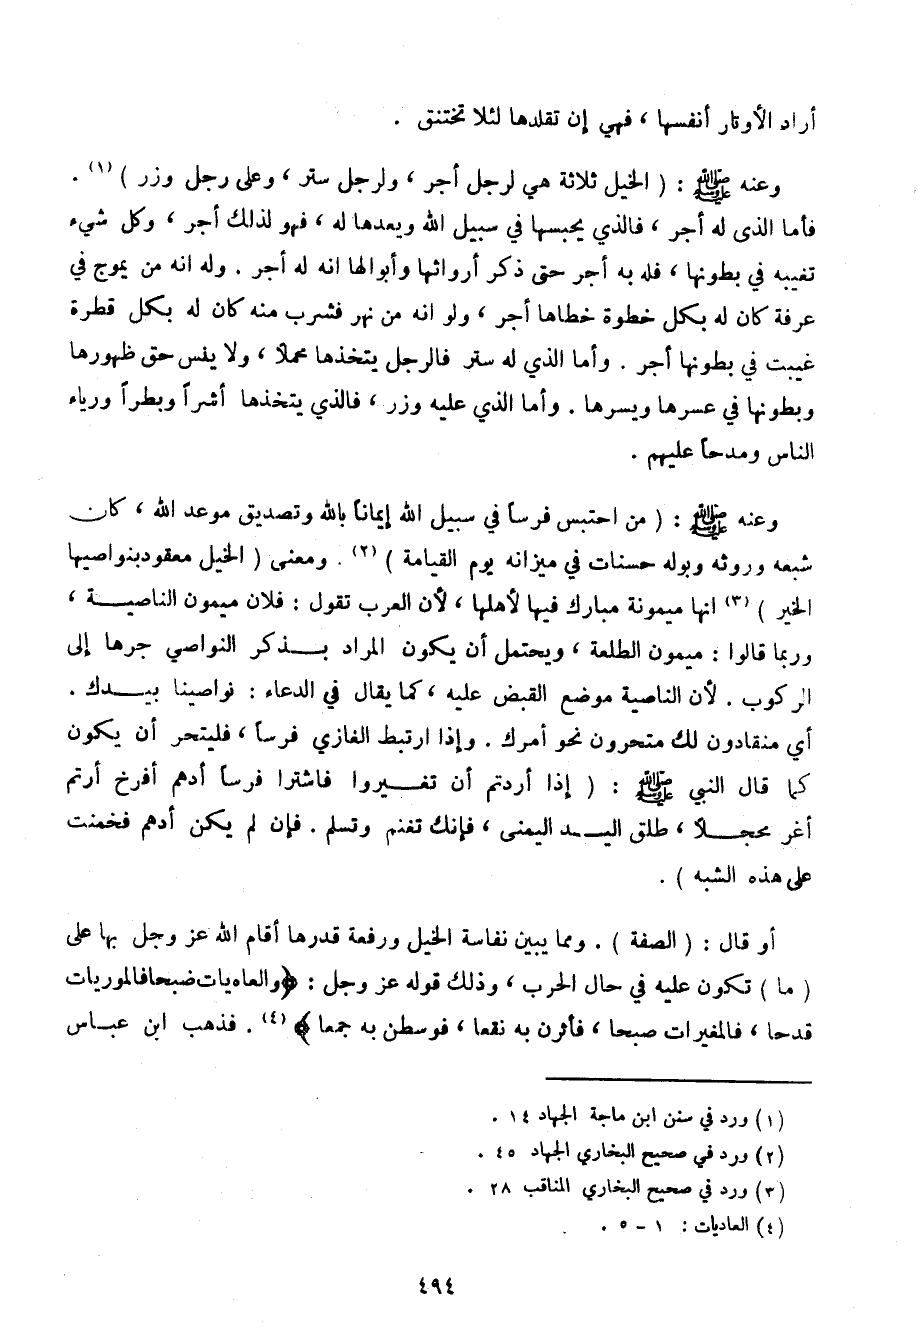 أراد الأوتار أنفسها ، فهي إن تقلدها لئلا تختنق .
وعنه ﷺ : ( الخيل ثلاثة هي لرجل أجر ، ولرجل ستر ، وعلى رجل وزر ) (١) .
فأما الذى له أجر ، فالذي يحبسها في سبيل الله ويعدها له ، فهو لذلك أجر ، وكل شيء
تغيبه في بطونها ، فله به أجر حتى ذكر أرواثها وأبوالها انه له أجر . وله انه من يموج في
عرفة كان له بكل خطوة خطاها أجر ، ولو انه من نهر فشرب منه كان له بكل قطرة
غيبت في بطونها أجر . وأما الذي له ستر فالرجل يتخذها محملاً ، ولا ينس حق ظهورها
وبطونها في عسرها ويسرها . وأما الذي عليه وزر ، فالذي يتخذها أشراً وبطراً ورياء
الناس ومدحاً عليهم .
وعنه ﷺ : ( من احتبس فرساً في سبيل الله إيماناً بالله وتصديق موعد الله ، كان
شبعه وروثه وبوله حسنات في ميزانه يوم القيامة ) (٢) . ومعنى ( الخيل معقودبنواصيها
الخير ) (٣) انها ميمونة مبارك فيها لأهلها ، لأن العرب تقول : فلان ميمون الناصية ،
وربما قالوا : ميمون الطلعة ، ويحتمل أن يكون المراد بذكر النواصي جرها إلى
الركوب . لأن الناصية موضع القبض عليه ، كما يقال في الدعاء : نواصينا بيدك .
أي منقادون لك متحرون نحو أمرك . وإذا ارتبط الغازي فرساً ، فليتحر أن يكون
كما قال النبي ﷺ : ( إذا أردتم أن تغيروا فاشترا فرساً أدهم أفرخ أرتم
أغر محجلاً ، طلق اليد اليمنى ، فإنك تغنم وتسلم . فإن لم يكن أدهم فخمنت
على هذه الشبه ) .
أو قال : ( الصفة ) . ومما يبين نفاسة الخيل ورفعة قدرها أقام الله عز وجل بها على
( ما ) تكون عليه في حال الحرب ، وذلك قوله عز وجل : ﴿والعاديات ضبحا فالموريات
قدحا ، فالمغيرات صبحا ، فأثرن به نقعا ، فوسطن به جمعا ﴾ (٤) . فذهب ابن عباس
(١) ورد في سنن ابن ماجة الجهاد ١٤ .
(٢) ورد في صحيح البخاري الجهاد ٤٥ .
(٣) ورد في صحيح البخاري المناقب ٢٨ .
(٤) العاديات : ١ - ٥ .
٤٩٤